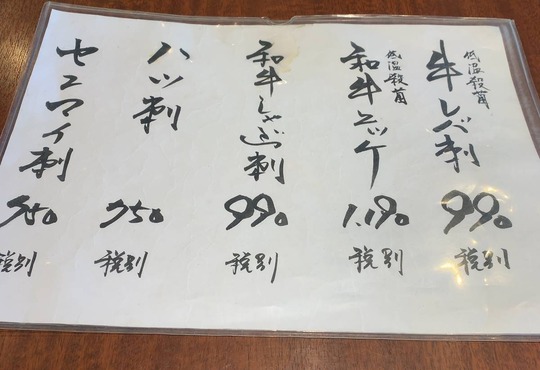 低温殺菌
牛レバ刺
990
税別
低温殺菌
和牛ユッケ
1.190
税別
和牛しゃぶ刺
990
税別
ハツ刺
750
税別
センマイ刺
750
税別